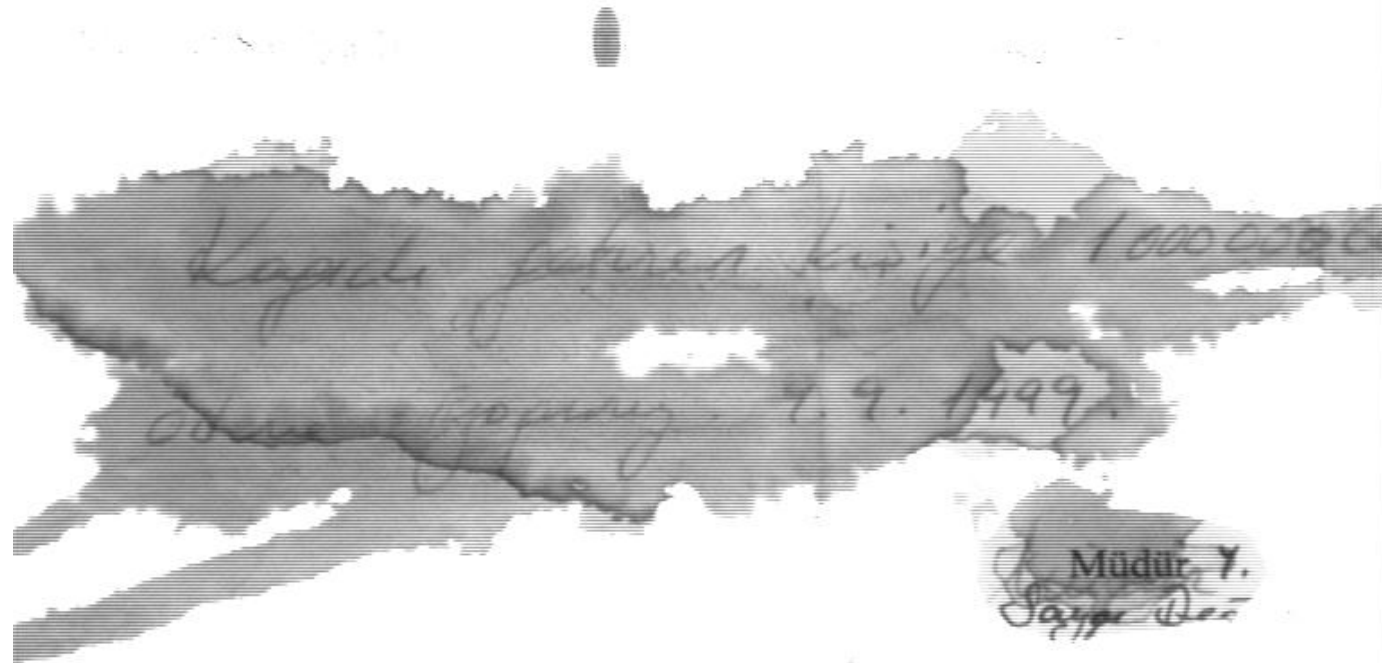 Kağıdı getiren kişiye 1000000
ödeme yapınız. 9.9.1999.
Müdür Y.